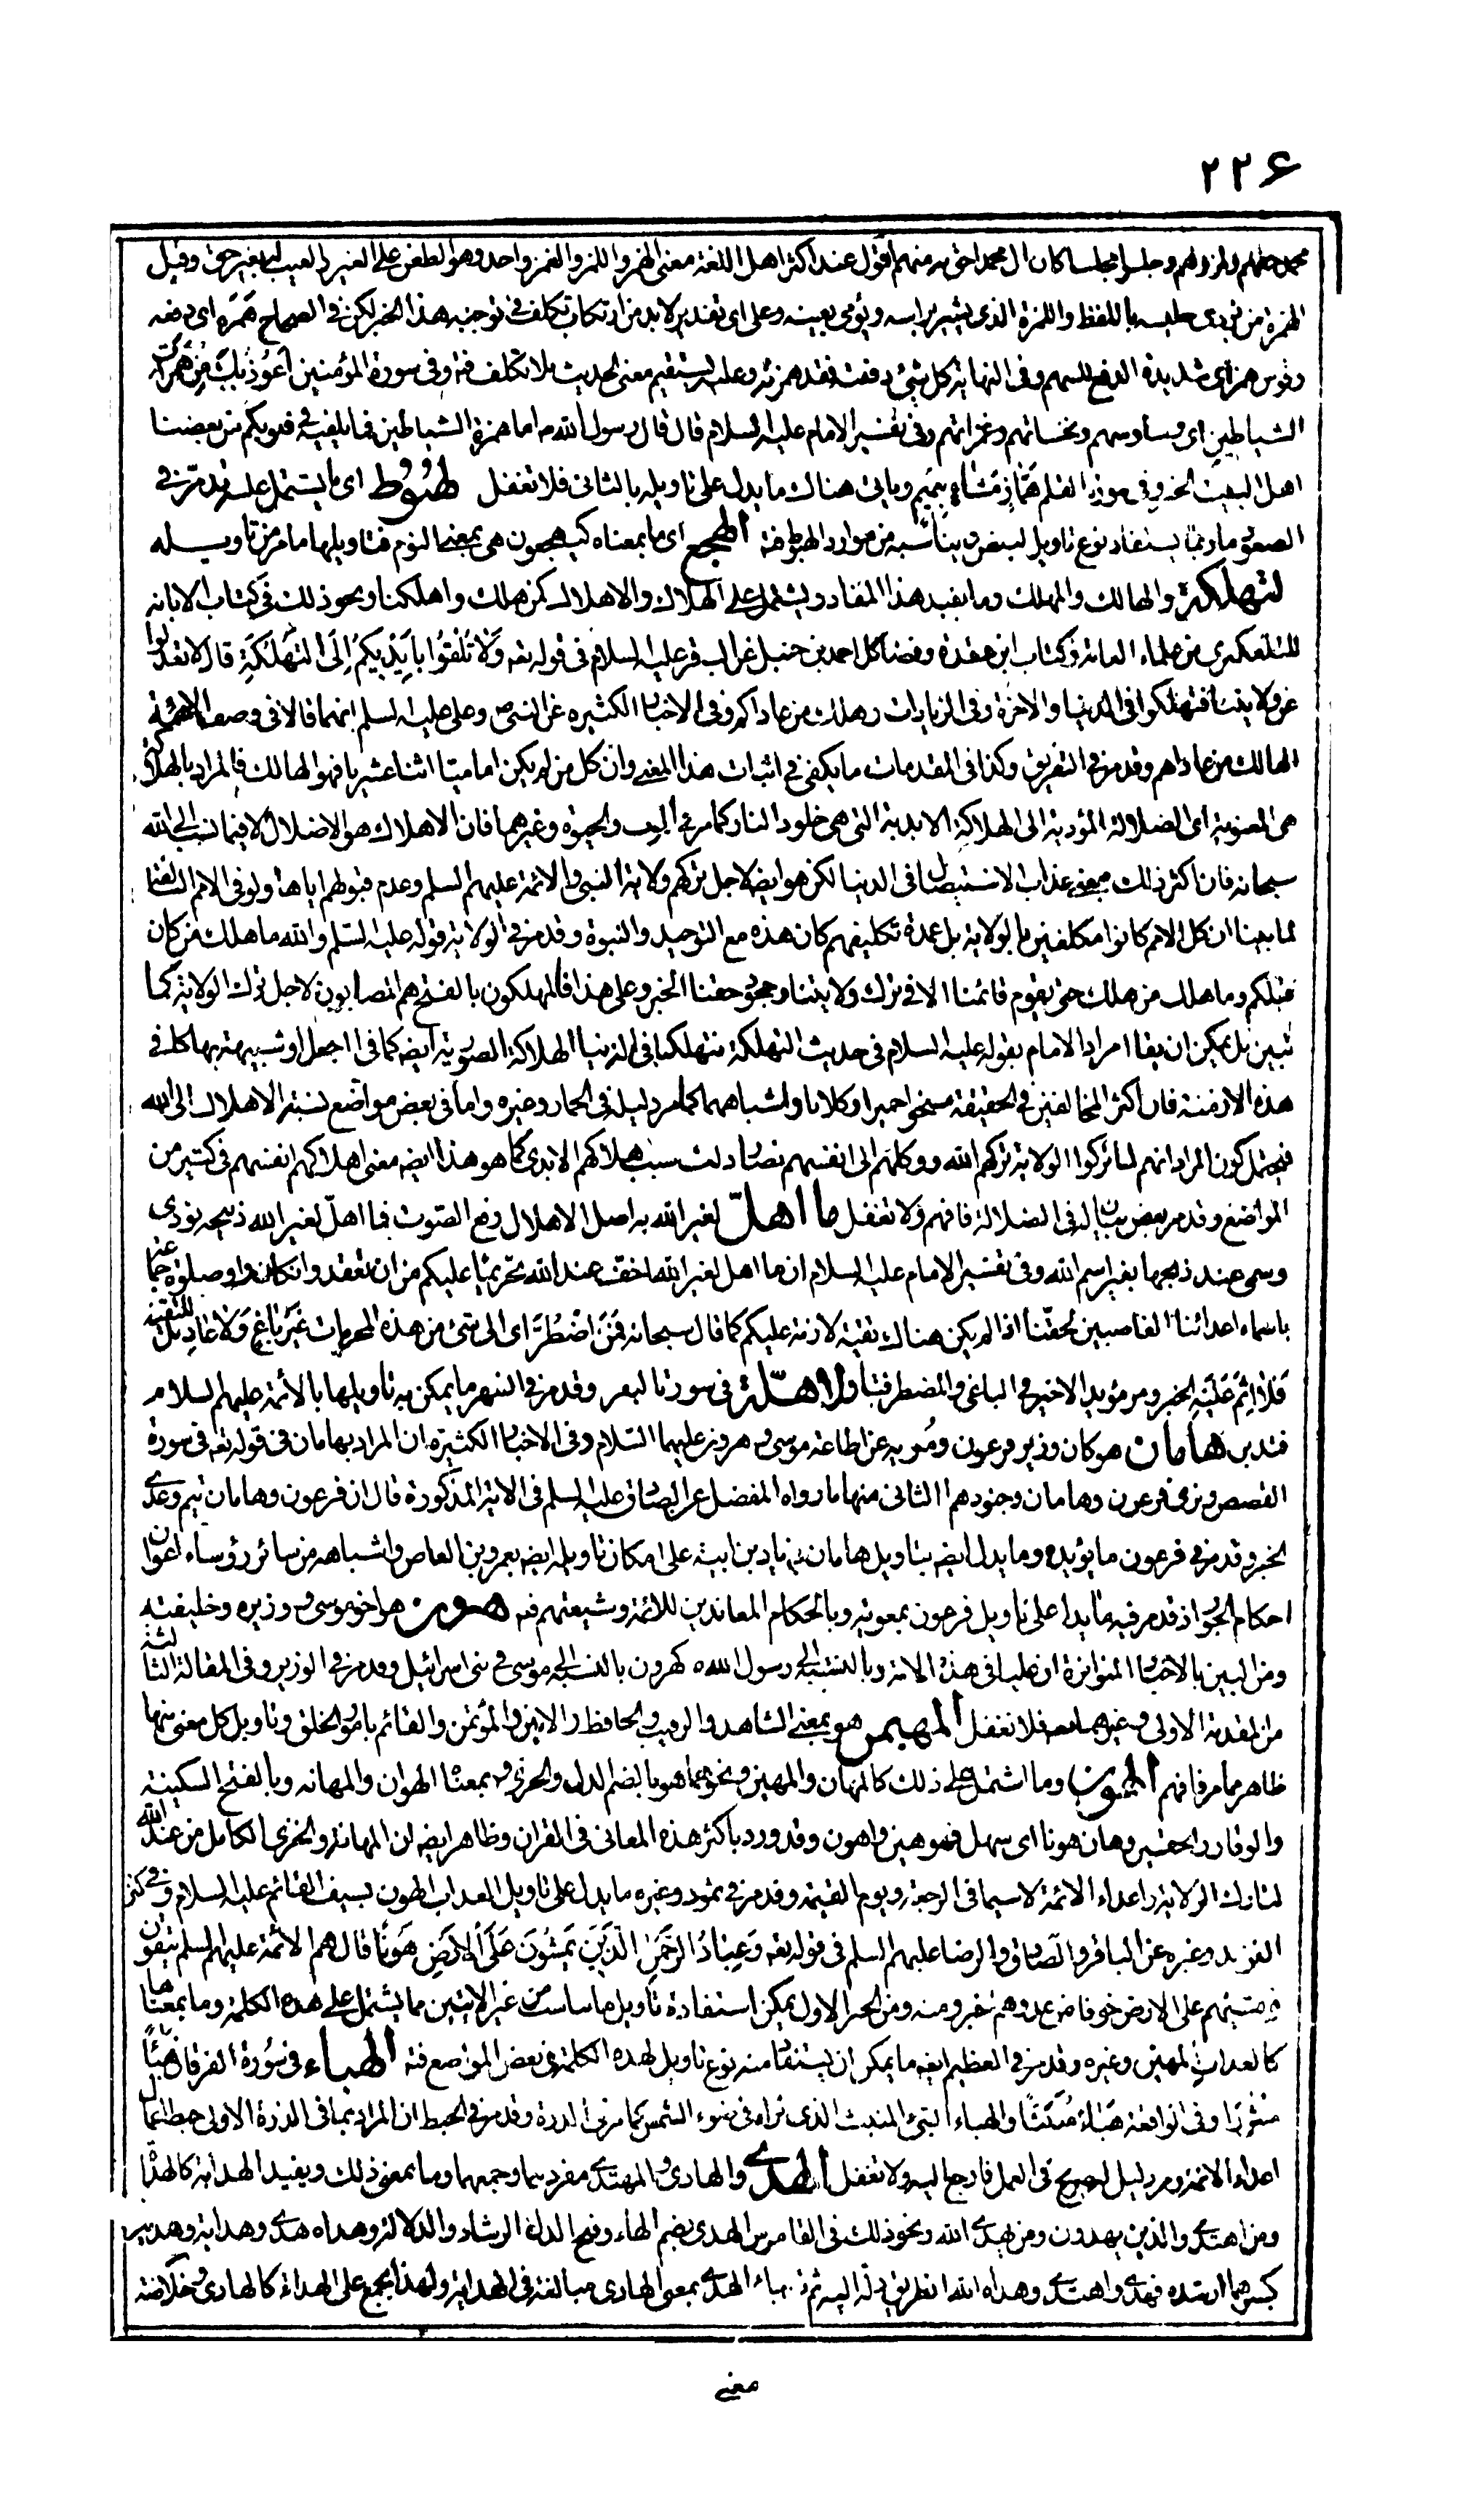 ٢٢۶
محمد حقهم ولمزوهم وجلسوا مجلسا كان ال محمد احق به منهم اقول عند اكثر اهل اللغة معنى الهمز واللمز والغمز واحد وهو الطعن على الغير والعيب له بغير حق وقيل
الهمزة من يؤذى جليسه باللفظ واللمزة الذى يشير براسه ويؤمى بعينه وعلى اى تقدير لابد من ارتكاب تكلف فى توجيه هذا الخبر لكن فى الصحاح همزه اى دفعه
وقوس همزى شديدة الدفع للسهم وفى النهاية كل شئ دفعته فقد همزته وعليه يستقيم معنى الحديث بلا تكلف فتد وفى سورة المؤمنين اعوذ بك من همزات
الشياطين اى وساوسهم ونخساتهم وغمزاتهم وفى تفسير الامام عليه السلام قال قال رسول الله ص اما همزة الشياطين فما يلقيه فى قلوبكم من بغضنا
اهل البيت الخبر وفى سورة القلم هماز مشاء بنميم وياتى هناك ما يدل على تاويله بالثانى فلا تغفل هبوط اى ما يشتمل عليه قد مر فى
الصعود ما ربما يستفاد نوع تاويل لبعض ما يناسبه من موارد الهبوط فتد الهجع اى ما بمعناه كيهجعون هى بمعنى النوم فتاويلها ما مر من تاويله
لتهلكة والهالك والمهلك وما يفيد هذا المفاد ويشتمل على الهلاك والاهلاك كمن هلك واهلكنا ونحو ذلك فى كتاب الابانة
للتلعكبرى من علماء العامة وكتاب ابن عقدة وفضائل احمد بن حنبل عن الباقر عليه السلام فى قوله تعه ولا تلقوا بايديكم الى التهلكة قال لا تعدلوا
عن ولايتنا فتهلكوا فى الدنيا والاخرة وفى الزيارات وهلك من عاداكم وفى الاخبار الكثيرة عن النبى ص وعلى عليه السلم انهما قالا فى وصف الائمة
الهالك من عاداهم وقد مر فى التفريق وكذا فى المقدمات ما يكفى فى اثبات هذا المعنى وان كل من لم يكن اماميا اثناعشريا فهو الهالك فالمراد بالهلاك
هى المعنوية اى الضلالة المؤدية الى الهلاكة الابدية التى هى خلود النار كما مر فى الميت والحيوة وغيرهما فان الاهلاك هو الاضلال الا فيما نسب الى الله
سبحانه فان اكثر ذلك بمعنى عذاب الاستيصال فى الدنيا لكن هو ايضا لاجل تركهم ولاية النبى والائمة عليهم السلم وعدم قبولهم اياها ولو فى الامم السالفة
لما بينا ان كل الامم كانوا مكلفين بالولاية بل عمدة تكليفهم كان هذه مع التوحيد والنبوة وقد مر فى الولاية قوله عليه السلم والله ما هلك من كان
قبلكم وما هلك من هلك حتى يقوم قائمنا الا فى ترك ولايتنا وجحود حقنا الخبر وعلى هذا فالمهلكون بالفتح هم المصابون لاجل ترك الولاية كما
تبين بل يمكن ان يقا امراد الامام بقوله عليه السلام فى حديث التهلكة فتهلكوا فى الدنيا الهلاكة الصورية ايضه كما فى
هذه الازمنة فان اكثر المخالفين فى الحقيقة مسخوا حميرا وكلابا واشباههما كما مر دليله فى الحمار وغيره واما فى بعض مواضع نسبة الاهلاك الى الله
فيحتمل كون المراد انهم لما تركوا الولاية تركهم الله ووكلهم الى انفسهم فصار ذلك سبب هلاكهم الابدى كما هو هذا ايضه معنى اهلاكهم انفسهم فى كثير من
المواضع وقد مر بعض بيان له فى الضلالة فافهم ولا تغفل ما اهل لغير الله به اصل الاهلال رفع الصوت فما اهل لغير الله ذبيحه نودى
وسمى عند ذبحها بغير اسم الله وفى تفسير الامام عليه السلام ان ما اهل لغير الله اخف عند الله تحريما عليكم من ان تعقدوا نكاحا او صلوة جماعة
باسماء اعدائنا الغاصبين لحقنا اذا لم يكن هناك تقية لازمة عليكم كما قال سبحانه فمن اضطر اى الى شئ من هذه المحرمات غير باغ ولا عاد بل للتقية
فلا اثم عليه الخبر ومر مؤيد الاخير فى الباغى والمضطر فتد والاهلة فى سورة البقر وقد مر فى الشهر ما يمكن به تاويلها بالائمة عليهم السلام
فتدبر هامان هو كان وزير فرعون ومغويه عن اطاعة موسى وهرون عليهما السلام وفى الاخبار الكثيرة ان المراد بهامان فى قوله تعه فى سورة
القصص ونرى فرعون وهامان وجنودهما الثانى منها ما رواه المفضل عن الصادق عليه السلم فى الاية المذكورة قال ان فرعون وهامان تيم وعدى
الخبر وقد مر فى فرعون ما يؤيده وما يدل ايضه بتاويل هامان بزياد بن ابيه على امكان تاويله ايضه بعمرو بن العاص واشباهه من سائر رؤساء اعوان
احكام الجور اذ قد مر فيه ما يدل على تاويل فرعون بمعوية وبالحكام المعاندين للائمة وشيعتهم فتد هرون هو اخو موسى ووزيره وخليفته
ومن البين بالاخبار المتواترة ان عليا فى هذه الامة وبالنسبة الى رسول الله ص كهرون بالنسبة الى موسى فى بنى اسرائيل وقد مر فى الوزير وفى المقالة الثالثة
من المقدمة الاولى وغيرها فلا تغفل المهيمن هو بمعنى الشاهد والرقيب والحافظ والامين والمؤتمن والقائم بامور الخلق وتاويل كل معنى منها
ظاهر مما مر فافهم الهون وما اشتمل على ذلك كالمهان والمهين ونحوهما هو بالضم الذل والخزى وبمعناه الهوان والمهانه وبالفتح السكينة
والوقار والحقير وهان هونا اى سهل فهو هين واهون وقد ورد باكثر هذه المعانى فى القران وظاهر ايضه ان المهانة والخزى الكامل من عند الله
لتارك الولاية واعداء الائمة لا سيما فى الرجعة ويوم القيمة وقد مر فى ثمود وغيره ما يدل على تاويل العذاب الهون بسيف القائم عليه السلام وفى كنز
الفوائد وغيره عن الباقر والصادق والرضا عليهم السلم فى قوله تعه وعباد الرحمن الذين يمشون على الارض هونا قال هم الائمة عليهم السلم يتقون
فى مشيهم على الارض خوفا من عدوهم الخبر ومنه ومن الخبر الاول يمكن استفادة تاويل ما يناسب من غير الايتين مما يشتمل على هذه الكلمة وما بمعناها
كالعذاب المهين وغيره وقد مر فى العظيم ايضه ما يمكن ان يستفاد منه نوع تاويل لهذه الكلمة فى بعض المواضع فتد الهباء فى سورة الفرقان هباء
منثورا وفى الواقعة هباء منبثا والهباء الشئ المنبث الذى تراه فى ضوء الشمس كما مر فى الذرة وقد مر فى الحبط ان المراد بما فى الذرة الاولى حبط اعمال
اعداء الائمة ومر دليل صريح فى العمل فارجع اليه ولا تغفل الهدى والهادى والمهتدى مفردهما وجمعهما وما بمعنى ذلك ويفيد الهداية كالهداة
ومن اهتدى والذين يهدون ومن يهدى الله ونحو ذلك فى القاموس الهدى بضم الهاء وفتح الدال الرشاد والدلالة وهداه هدى وهداية وهدية
بكسرهما ارشده فهدى واهتدى وهداه الله الطريق وله واليه ثم جاء الهدى بمعنى الهادى مبالغة فى الهداية ولهذا يجمع على الهداة كالهادى وخلاصة
معنى